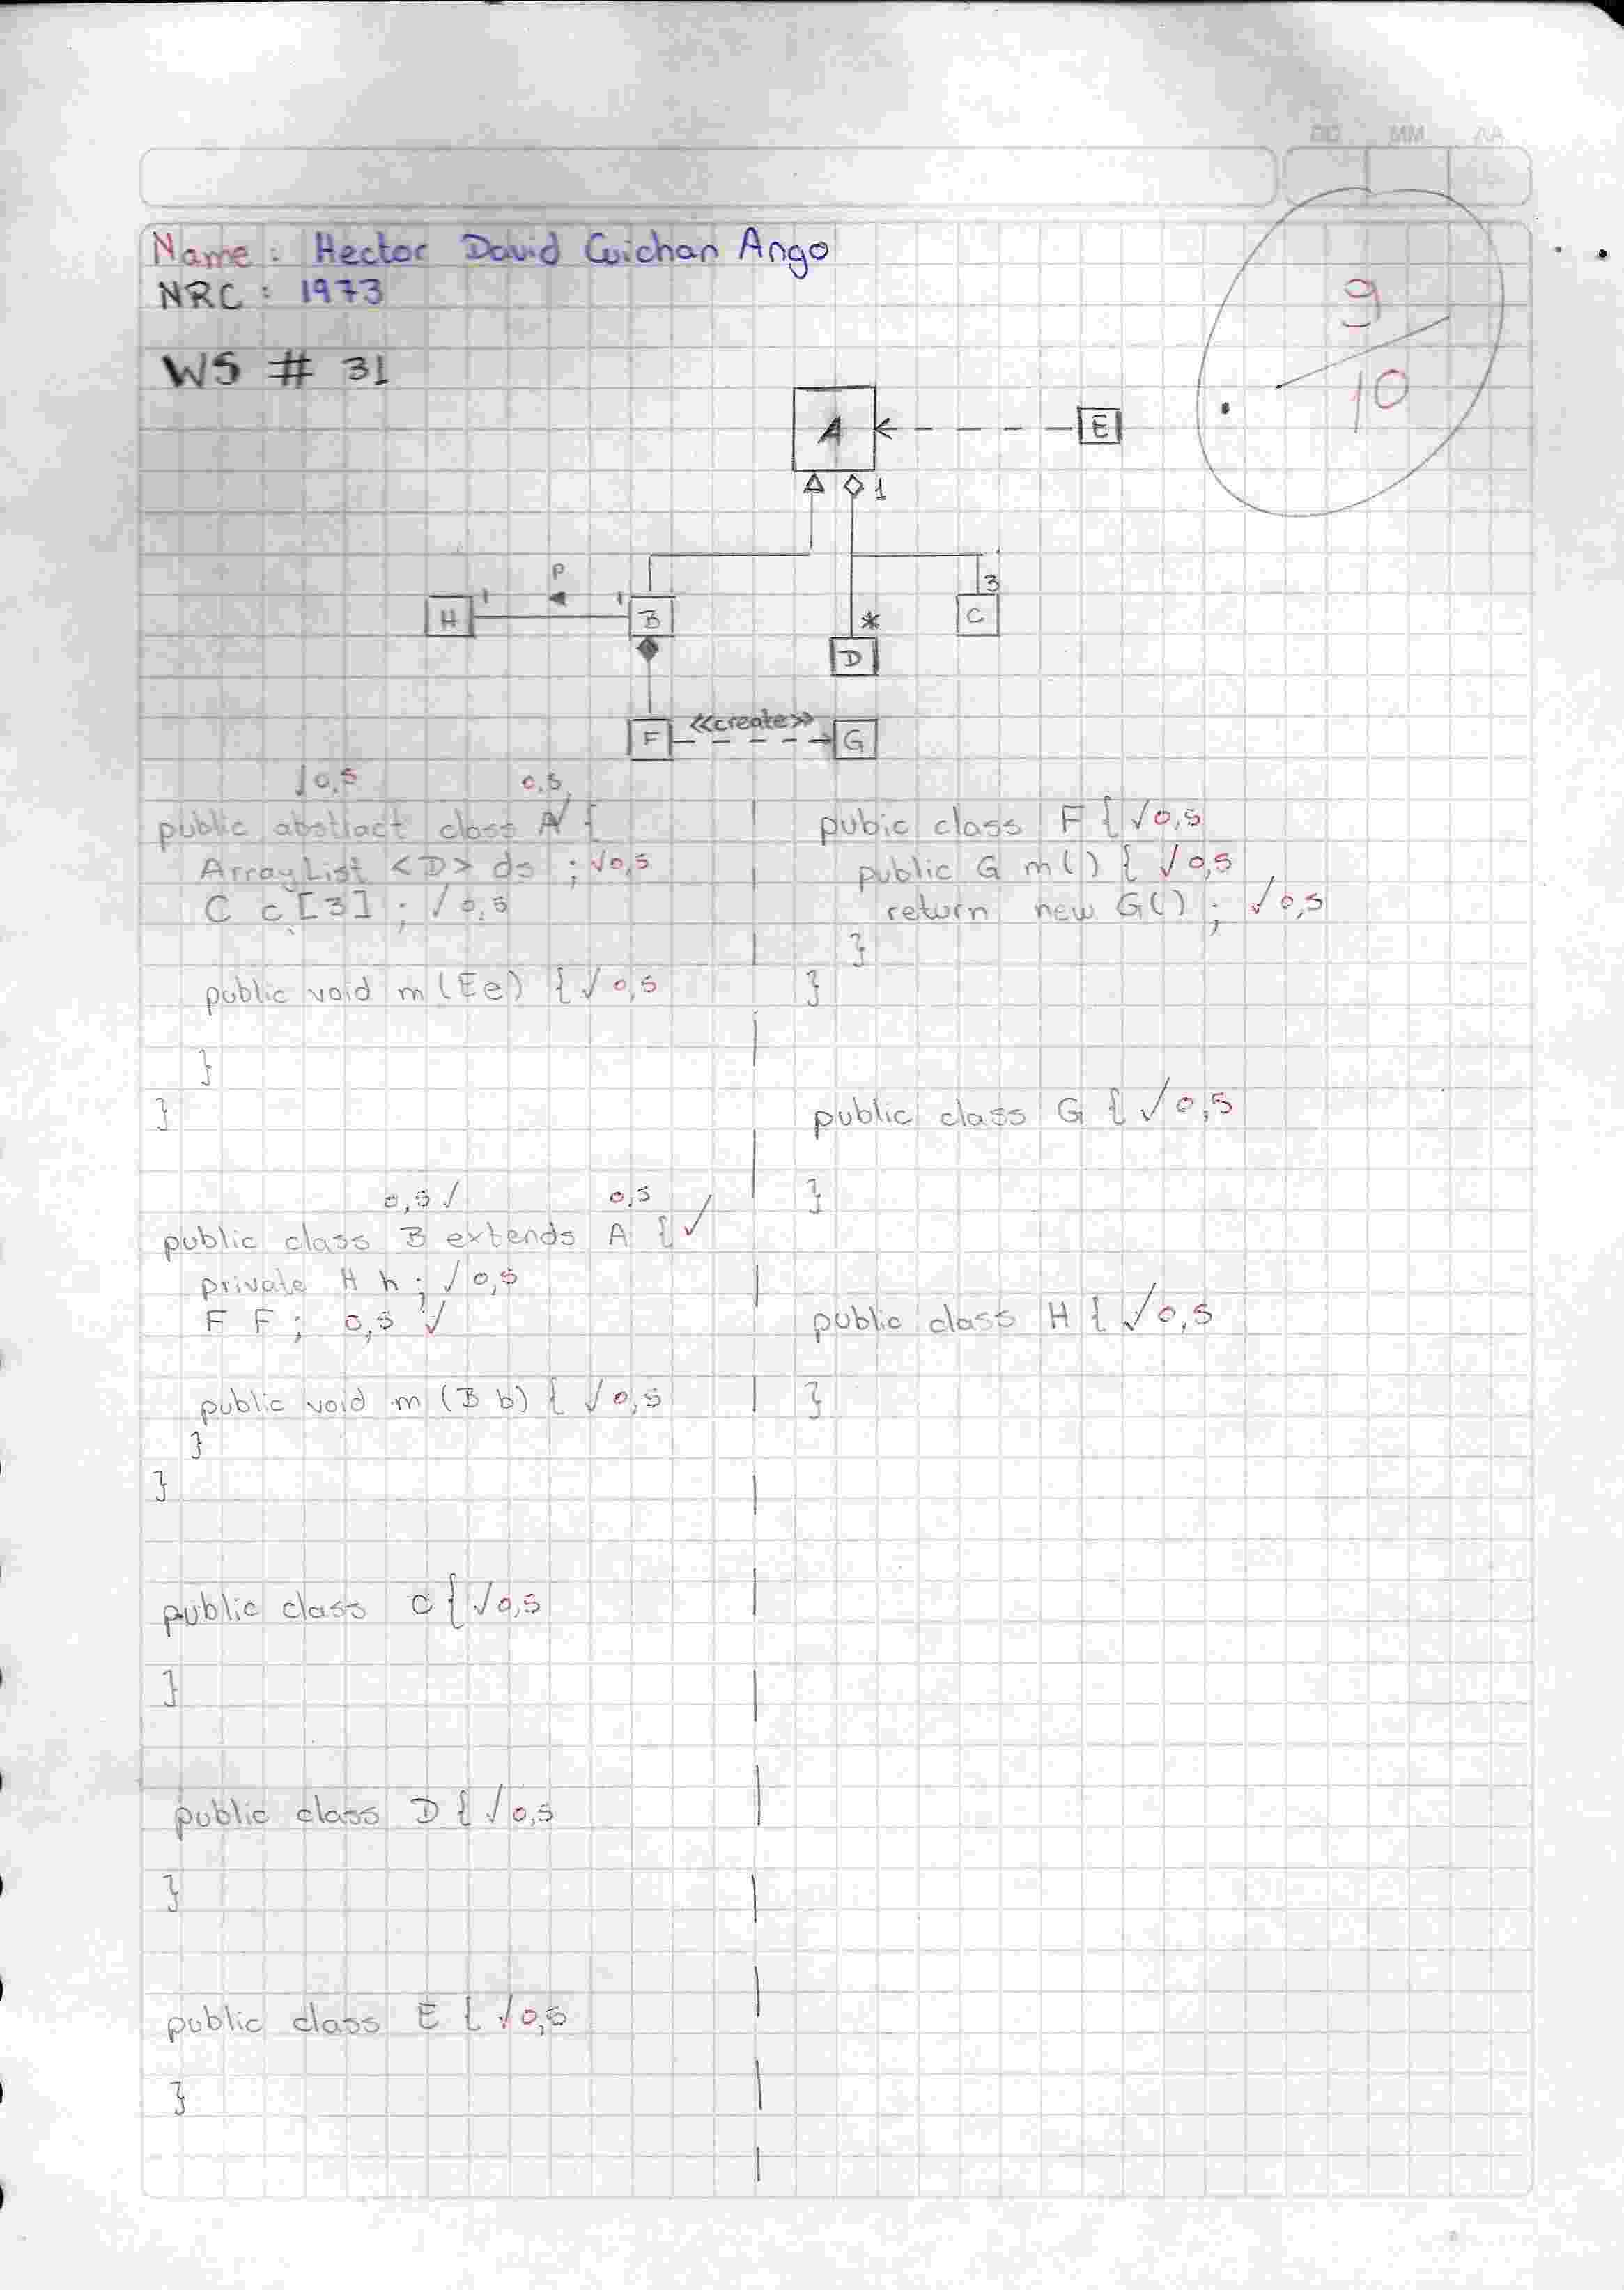 DD MM AA
Name : Hector David Cuichan Ango
NRC : 1973
9
10
WS # 31
A
E
1
P
3
1
1
H
B
*
C
D
<<create>>
F
G
√0,5 0,5
public abstract class A √ {
ArrayList <D> ds ; √0,5
C c[3] ; √0,5
public void m (E e) { √0,5
}
}
0,5 √ 0,5
public class B extends A { √
private H h ; √0,5
F F ; 0,5 √
public void m (B b) { √0,5
}
}
public class C { √0,5
}
public class D { √0,5
}
public class E { √0,5
}
pubic class F { √0,5
public G m() { √0,5
return new G() ; √0,5
}
}
public class G { √0,5
}
public class H { √0,5
}